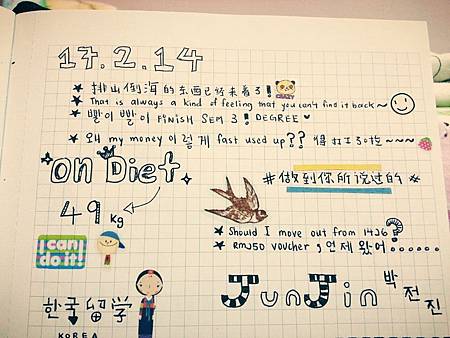 17.2.14
★ 排山倒海的东西已经来着了!
★ That is always a kind of feeling that you can't find it back~
★ 빨이 빨이 FINISH SEM 3! DEGREE ♥
★ 왜 my money 이렇게 fast used up??
on Diet
#做到你所说过的#
49 kg
I can do it!
★ Should I move out from 1426?
★ RM50 voucher 언제 왔어......
JunJin 박전진
한국留学
KOREA